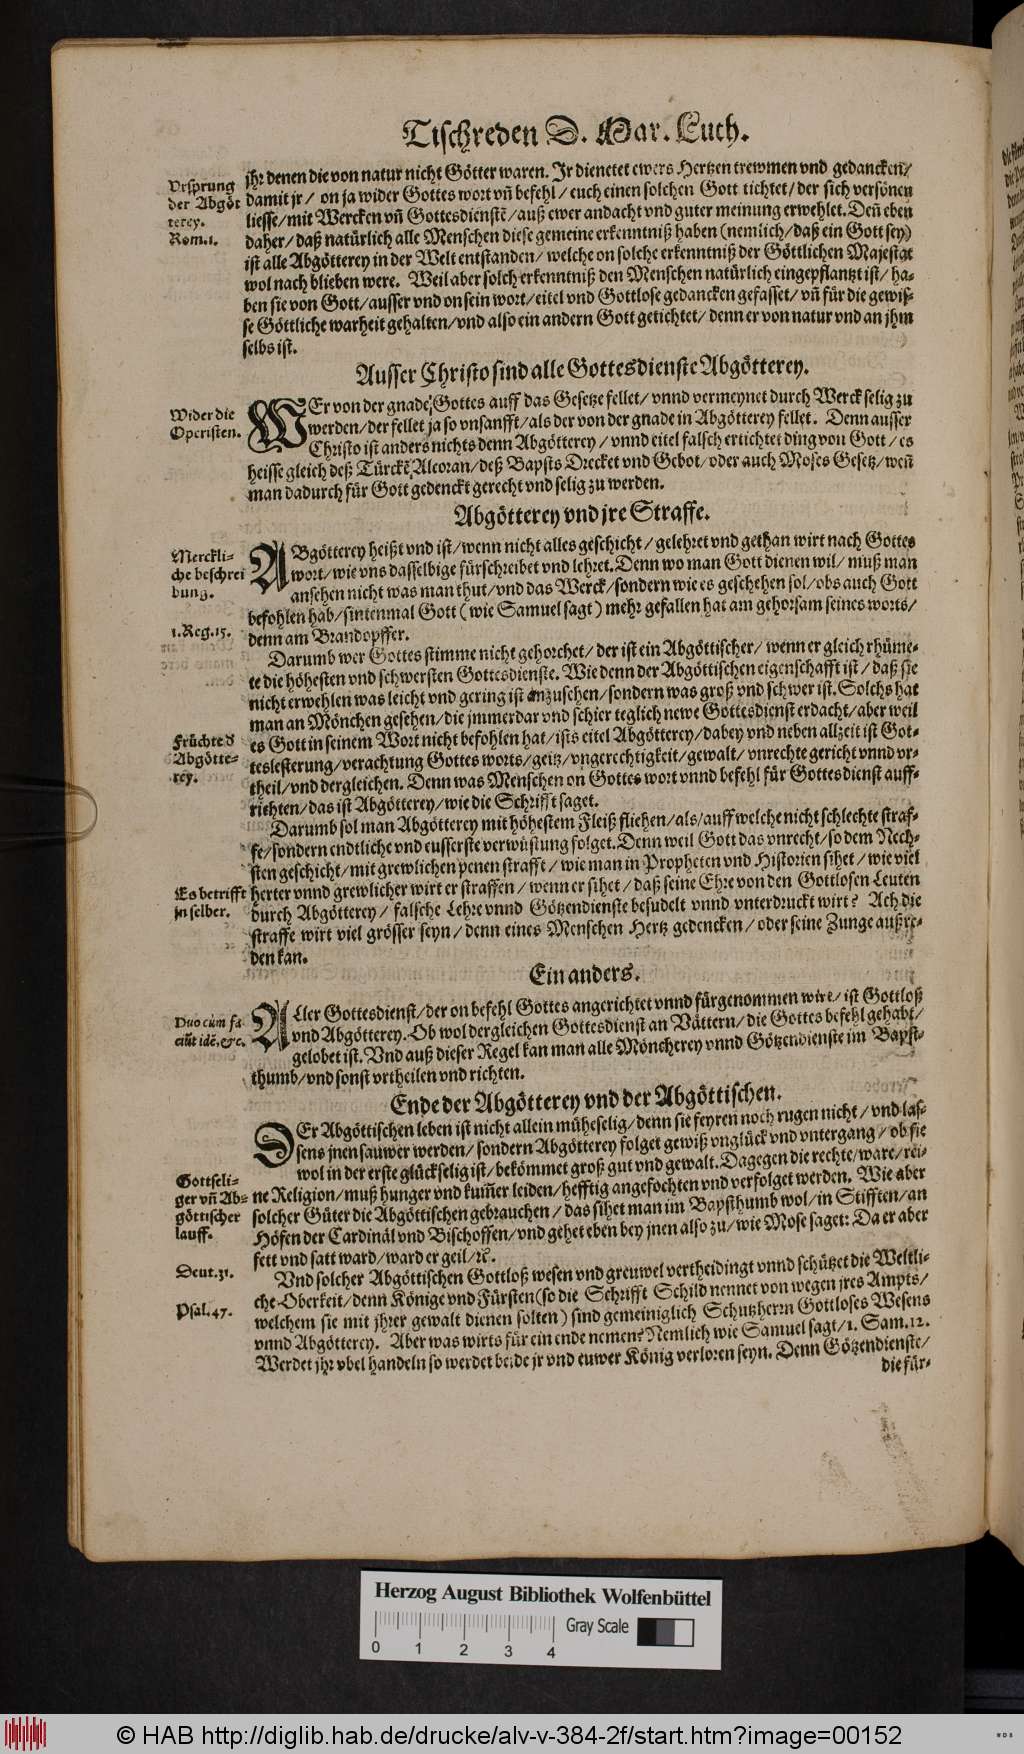 Tischreden D. Mar. Luth.
Vrsprung
der Abgöt
terey.
Rom. 1.
jhr denen die von natur nicht Götter waren. Jr dienetet ewers Hertzen trewmen vnd gedancken/
damit jr / on ja wider Gottes wort vn̄ befehl / euch einen solchen Gott tichtet / der sich versönen
liesse / mit Wercken vn̄ Gottesdienstē / auß ewer andacht vnd guter meinung erwehlet. Deñ eben
daher / daß natürlich alle Menschen diese gemeine erkenntniß haben (nemlich / daß ein Gott sey)
ist alle Abgötterey in der Welt entstanden / welche on solche erkenntniß der Göttlichen Majestat
wol nach blieben were. Weil aber solch erkenntniß den Menschen natürlich eingepflantzt ist / ha-
ben sie von Gott / ausser vnd on sein wort / eitel vnd Gottlose gedancken gefasset / vn̄ für die gewis-
se Göttliche warheit gehalten / vnd also ein andern Gott getichtet / denn er von natur vnd an jhm
selbs ist.
Ausser Christo sind alle Gottesdienste Abgötterey.
Wider die
Operisten.
WEr von der gnade Gottes auff das Gesetze fellet / vnnd vermeynet durch Werck selig zu
werden / der fellet ja so vnsanfft / als der von der gnade in Abgötterey fellet. Denn ausser
Christo ist anders nichts denn Abgötterey / vnnd eitel falsch ertichtet ding von Gott / es
heisse gleich deß Türckē Alcoran / deß Bapsts Drecket vnd Gebot / oder auch Moses Gesetz / weñ
man dadurch für Gott gedenckt gerecht vnd selig zu werden.
Abgötterey vnd jre Straffe.
Merckli-
che beschrei
bung.
1. Reg. 15.
ABgötterey heißt vnd ist / wenn nicht alles geschicht / gelehret vnd gethan wirt nach Gottes
wort / wie vns dasselbige fürschreibet vnd lehret. Denn wo man Gott dienen wil / muß man
ansehen nicht was man thut / vnd das Werck / sondern wie es geschehen sol / obs auch Gott
befohlen hab / sintenmal Gott (wie Samuel sagt) mehr gefallen hat am gehorsam seines worts /
denn am Brandopffer.
Darumb wer Gottes stimme nicht gehorchet / der ist ein Abgöttischer / wenn er gleich rhüme-
te die höhesten vnd schwersten Gottesdienste. Wie denn der Abgöttischen eigenschafft ist / daß sie
nicht erwehlen was leicht vnd gering ist anzusehen / sondern was groß vnd schwer ist. Solchs hat
man an Mönchen gesehen / die jmmerdar vnd schier teglich newe Gottesdienst erdacht / aber weil
es Gott in seinem Wort nicht befohlen hat / ists eitel Abgötterey / dabey vnd neben allzeit ist Got-
teslesterung / verachtung Gottes worts / geitz / vngerechtigkeit / gewalt / vnrechte gericht vnnd vr-
theil / vnd dergleichen. Denn was Menschen on Gottes wort vnnd befehl für Gottesdienst auff-
richten / das ist Abgötterey / wie die Schrifft saget.
Früchte d
Abgötte-
rey.
Darumb sol man Abgötterey mit höhestem Fleiß fliehen / als / auff welche nicht schlechte straf-
fe / sondern endtliche vnd eusserste verwüstung folget. Denn weil Gott das vnrecht / so dem Nech-
sten geschicht / mit grewlichen penen strafft / wie man in Propheten vnd Historien sihet / wie viel
herter vnnd grewlicher wirt er straffen / wenn er sihet / daß seine Ehre von den Gottlosen Leuten
durch Abgötterey / falsche Lehre vnnd Götzendienste besudelt vnnd vnterdruckt wirt? Ach die
straffe wirt viel grösser seyn / denn eines Menschen Hertz gedencken / oder seine Zunge außre-
den kan.
Es betrifft
jn selber.
Ein anders.
Duo cùm fa
ciūt idē, &c.
ALler Gottesdienst / der on befehl Gottes angerichtet vnnd fürgenommen wirt / ist Gottloß
vnd Abgötterey. Ob wol dergleichen Gottesdienst an Vättern / die Gottes befehl gehabt /
gelobet ist. Vnd auß dieser Regel kan man alle Möncherey vnnd Götzendienste im Bapst-
thumb / vnd sonst vrtheilen vnd richten.
Ende der Abgötterey vnd der Abgöttischen.
DEr Abgöttischen leben ist nicht allein müheselig / denn sie feyren noch rugen nicht / vnd las-
sens jnen sauwer werden / sondern Abgötterey folget gewiß vnglück vnd vntergang / ob sie
wol in der erste glückselig ist / bekömmet groß gut vnd gewalt. Dagegen die rechte / ware / rei-
ne Religion / muß hunger vnd kum̄er leiden / hefftig angefochten vnd verfolget werden. Wie aber
solcher Güter die Abgöttischen gebrauchen / das sihet man im Bapsthumb wol / in Stifften / an
Höfen der Cardinäl vnd Bischoffen / vnd gehet eben bey jnen also zu / wie Mose saget: Da er aber
fett vnd satt ward / ward er geil / ꝛc.
Gottseli-
ger vn̄ Ab-
göttischer
lauff.
Deut. 31.
Psal. 47.
Vnd solcher Abgöttischen Gottloß wesen vnd greuwel vertheidingt vnnd schützet die Weltli-
che Oberkeit / denn Könige vnd Fürsten (so die Schrifft Schild nennet von wegen jres Ampts /
welchem sie mit jhrer gewalt dienen solten) sind gemeiniglich Schutzherrn Gottloses Wesens
vnnd Abgötterey. Aber was wirts für ein ende nemen? Nemlich wie Samuel sagt / 1. Sam. 12.
Werdet jhr vbel handeln so werdet beide jr vnd euwer König verloren seyn. Denn Götzendienste /
die für-
Herzog August Bibliothek Wolfenbüttel
Gray Scale
0 1 2 3 4
© HAB http://diglib.hab.de/drucke/alv-v-384-2f/start.htm?image=00152